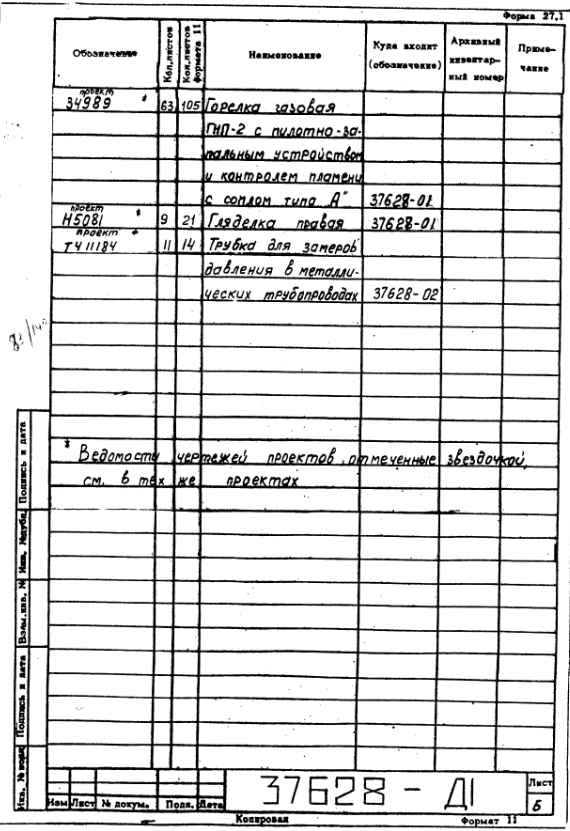 Форма 27.1
Обозначение Кол.листов Кол.листов формата 11 Наименование Куда входит (обозначение) Архивный инвентарный номер Примечание
проект
34989 * 63 105 Горелка газовая
ГНП-2 с пилотно-за-
пальным устройством
и контролем пламени
с соплом типа „А" 37628-01
проект
Н5081 * 9 21 Гляделка правая 37628-01
проект *
Т411184 11 14 Трубка для замеров
давления в металли-
ческих трубопроводах 37628-02
* Ведомости чертежей проектов, отмеченные звездочкой,
см. в тех же проектах
Подпись и дата
Инв. №дубл.
Взам.инв. №
Подпись и дата
Инв. № подл.
37628 - Д1
Изм Лист № докум. Подп. Дата
Лист
6
Копировал Формат 11